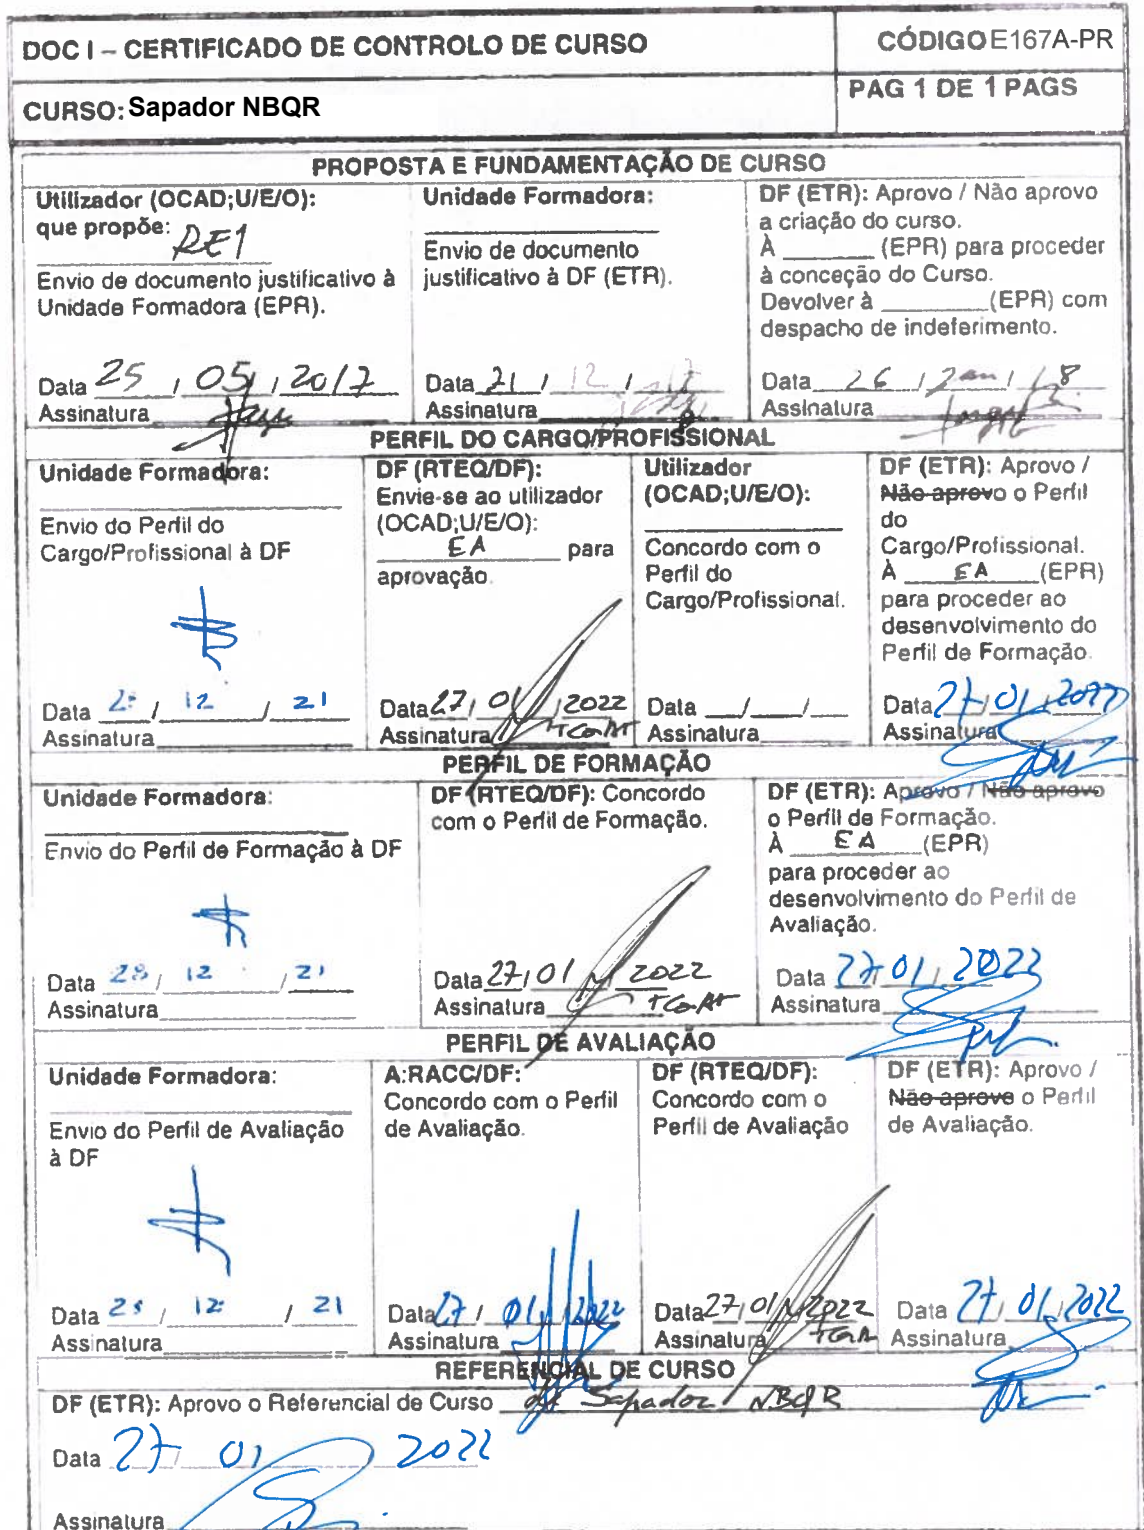 DOC I – CERTIFICADO DE CONTROLO DE CURSO
CÓDIGO E167A-PR
CURSO: Sapador NBQR
PAG 1 DE 1 PAGS
PROPOSTA E FUNDAMENTAÇÃO DE CURSO
Utilizador (OCAD;U/E/O):
que propõe: RE1
Envio de documento justificativo à
Unidade Formadora (EPR).
Data 25 / 05 / 2017
Assinatura
Unidade Formadora:
Envio de documento
justificativo à DF (ETR).
Data 21 / 12 /
Assinatura
DF (ETR): Aprovo / Não aprovo
a criação do curso.
À ________ (EPR) para proceder
à conceção do Curso.
Devolver à ________(EPR) com
despacho de indeferimento.
Data 26 / Jan / 18
Assinatura
PERFIL DO CARGO/PROFISSIONAL
Unidade Formadora:
Envio do Perfil do
Cargo/Profissional à DF
Data / 12 / 21
Assinatura
DF (RTEQ/DF):
Envie-se ao utilizador
(OCAD;U/E/O):
EA para
aprovação.
Data 27 / 01 / 2022
Assinatura
Utilizador
(OCAD;U/E/O):
Concordo com o
Perfil do
Cargo/Profissional.
Data ___/___/___
Assinatura
DF (ETR): Aprovo /
Não aprovo o Perfil
do
Cargo/Profissional.
À EA (EPR)
para proceder ao
desenvolvimento do
Perfil de Formação.
Data 27 / 01 / 2022
Assinatura
PERFIL DE FORMAÇÃO
Unidade Formadora:
Envio do Perfil de Formação à DF
Data 28 / 12 / 21
Assinatura
DF (RTEQ/DF): Concordo
com o Perfil de Formação.
Data 27 / 01 / 2022
Assinatura
DF (ETR): Aprovo / Não aprovo
o Perfil de Formação.
À EA (EPR)
para proceder ao
desenvolvimento do Perfil de
Avaliação.
Data 27 / 01 / 2022
Assinatura
PERFIL DE AVALIAÇÃO
Unidade Formadora:
Envio do Perfil de Avaliação
à DF
Data 28 / 12 / 21
Assinatura
A:RACC/DF:
Concordo com o Perfil
de Avaliação.
Data 27 / 01 / 2022
Assinatura
DF (RTEQ/DF):
Concordo com o
Perfil de Avaliação
Data 27 / 01 / 2022
Assinatura
DF (ETR): Aprovo /
Não aprovo o Perfil
de Avaliação.
Data 27 / 01 / 2022
Assinatura
REFERENCIAL DE CURSO
DF (ETR): Aprovo o Referencial de Curso de Sapador NBQR
Data 27 01 2022
Assinatura